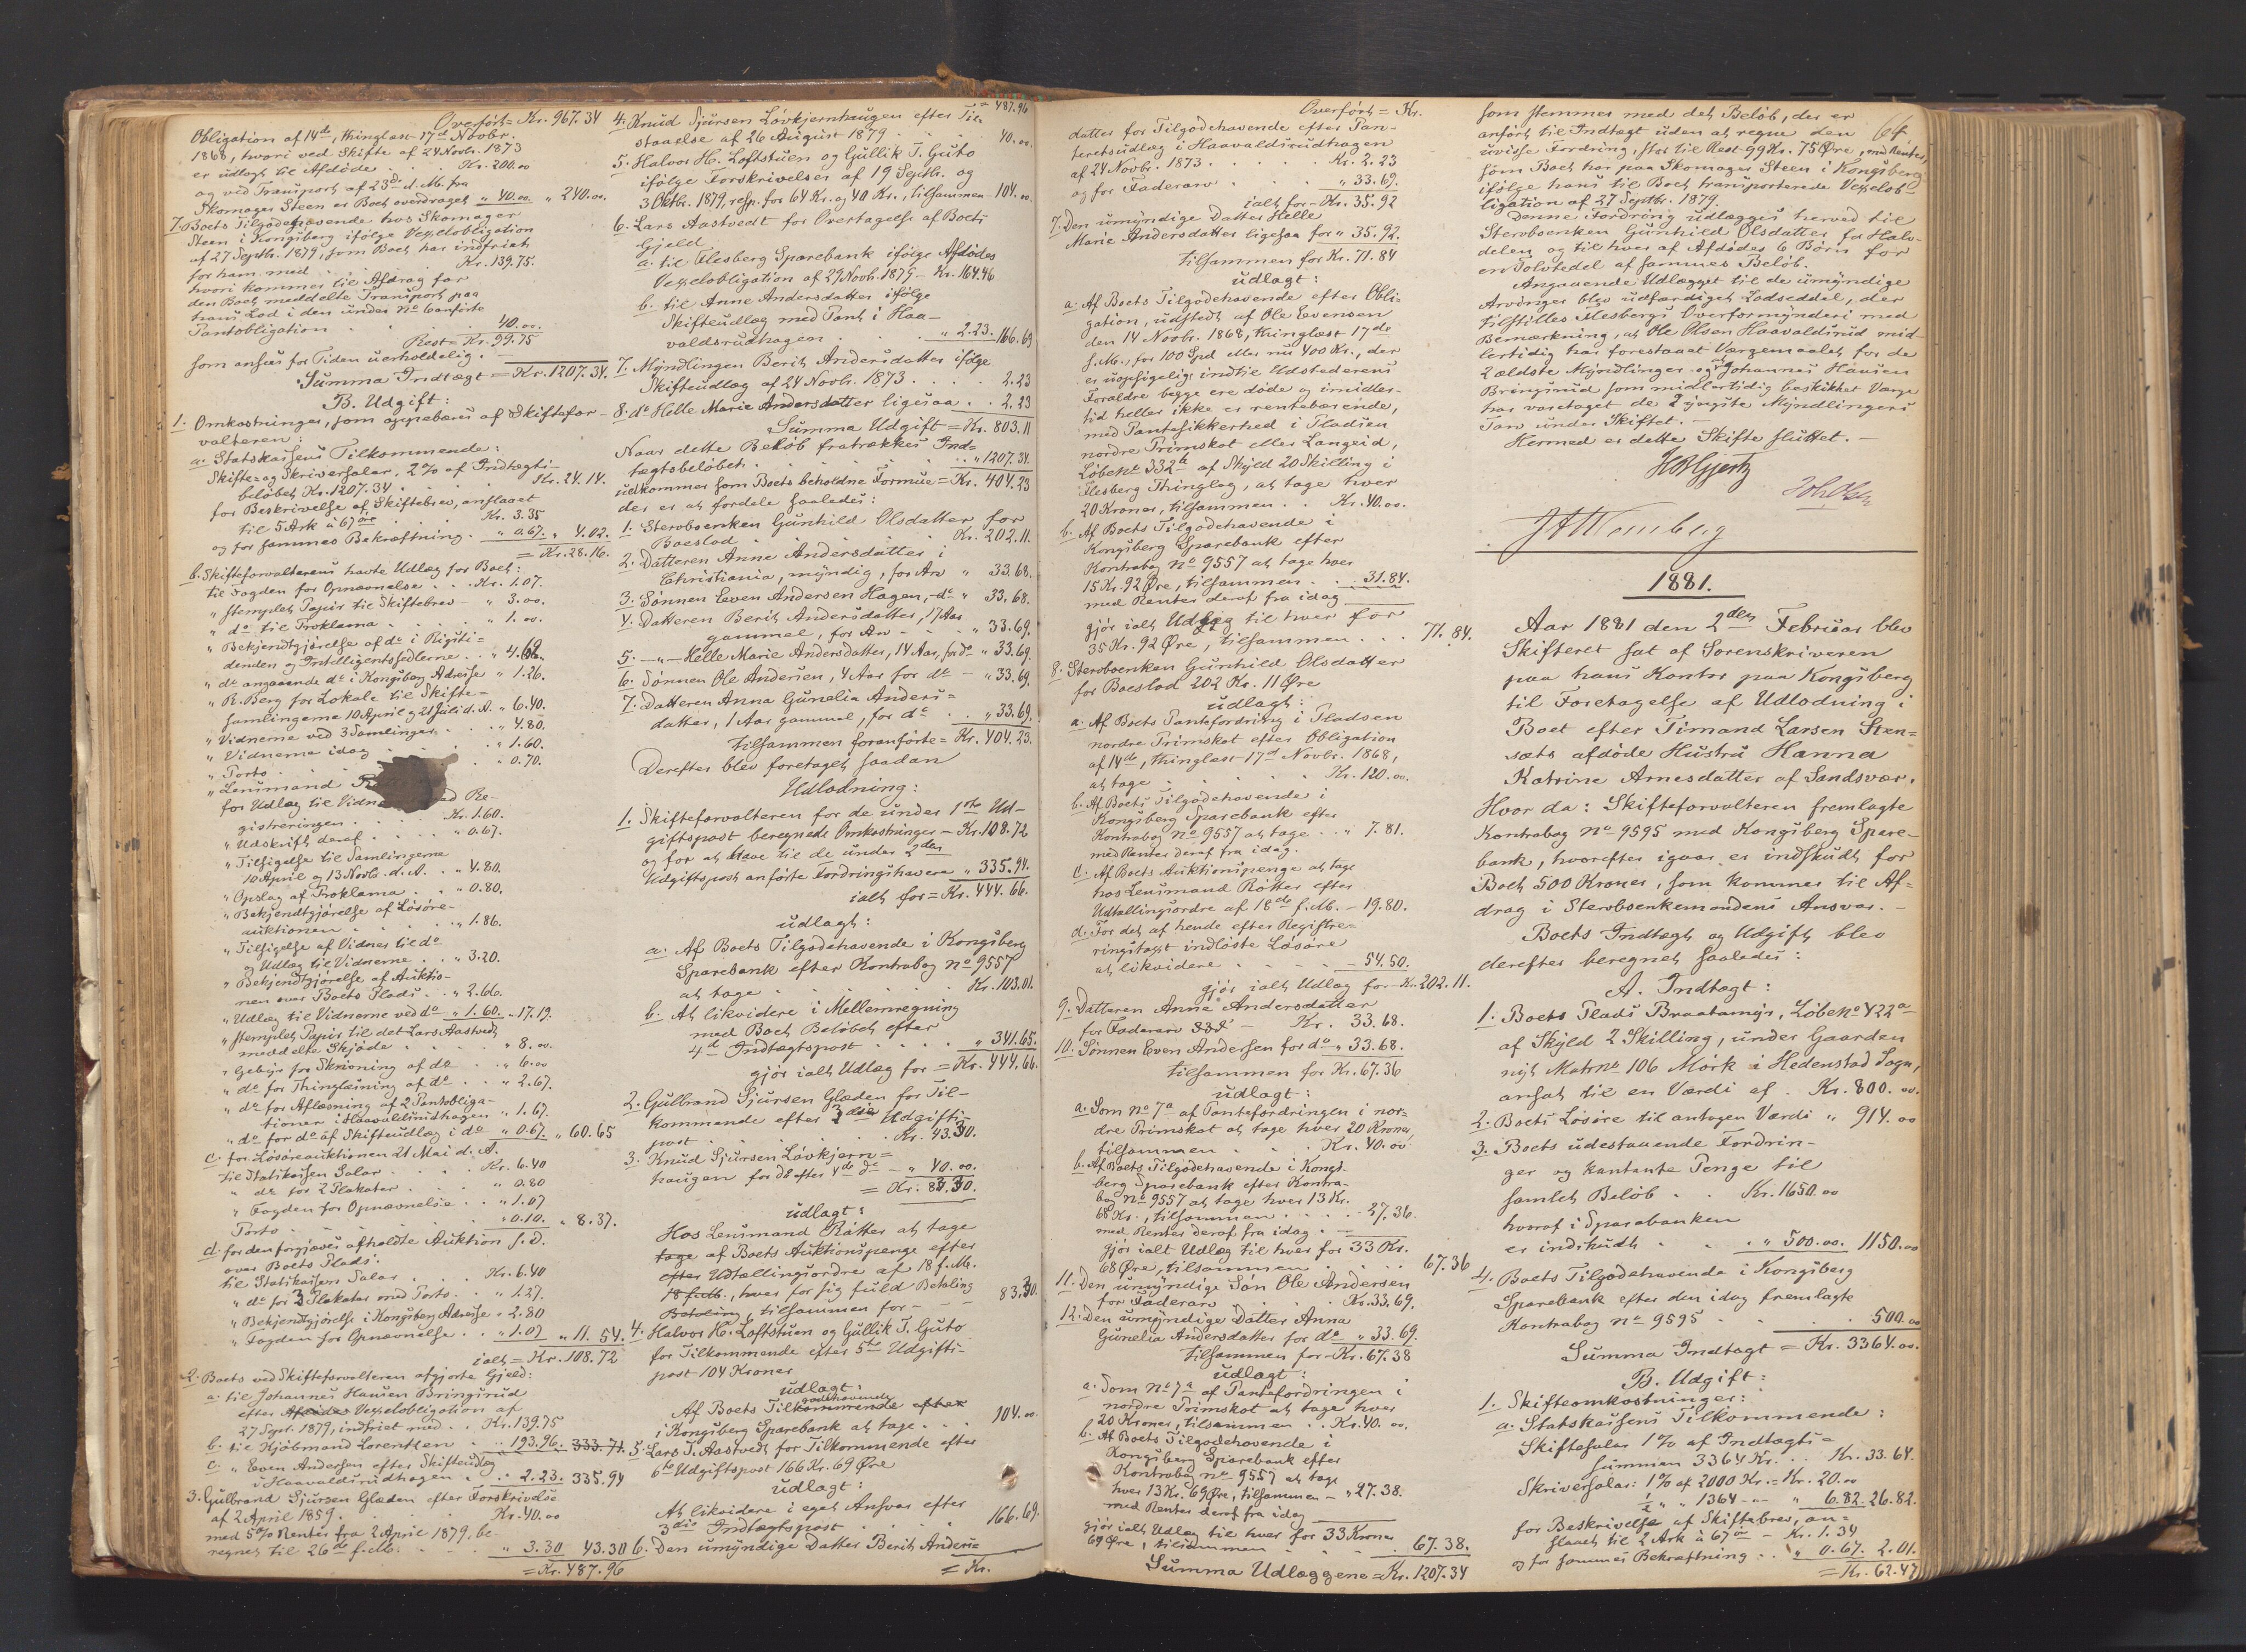 Overført = Kr. 967.34
Obligation af 14de, thinglæst 17de Novbr.
1868, hvori ved Skifte af 24 Novb. 1873
er udlagt til Afdøde . . Kr. 200.00
og ved Transport af 23de d. M. fra
Skomager Steen er Boet overdraget " 40.00 " 240.00
7. Boets Tilgodehavende hos Skomager
Steen i Kongsberg ifølge Vexelobligation
af 27 Septbr. 1879, som Boet har indfriet
for ham med . . Kr. 139.75.
hvori kommer til Afdrag for
den Boet meddelte Transport paa
hans Lod i den under No 6 anførte
Pantobligation . . 40.00.
Rest = Kr. 99.75
som ansees for Tiden uerholdelig. —
Summa Indtægt = Kr. 1207.34.
B. Udgift:
1. Omkostninger, som oppebæres af Skiftefor-
valteren:
a. Statskassens Tilkommende:
Skifte- og Skriversalær, 2% af Indtægts-
beløbet Kr. 1207.34 . . Kr. 24.14.
for Beskrivelse af Skiftebrev, anslaaet
til 5 Ark à 67 øre . Kr. 3.35
og for sammes Bekræftning . " 0.67. " 4.02.
= Kr. 28.16.
b. Skifteforvalterens havte Udlæg for Boet:
til Fogden for Opnævnelse . . Kr. 1.07.
" stemplet Papir til Skiftebrev — " 3.00.
" do til Proklama . . " 1.00.
" Bekjendtgjørelse af do i Rigsti-
denden og Intelligentssedlerne . . " 4.62.
" do angaaende do i Kongsberg Adresse " 1.26.
" R. Berg for Lokale til Skifte-
samlingerne 10 April og 21 Juli d. A. " 6.40.
" Vidnerne ved 3 Samlinger . . " 4.80.
" Vidnerne idag . . " 1.60.
" Porto . . " 0.70.
" Lensmand
for Udlæg til ved Re-
gistreringen . . Kr. 1.60.
" Udskrift deraf . . " 0.67.
" Tilsigelse til Samlingerne
10 April og 13 Novb. d. A. . " 4.80.
" Opslag af Proklama . . " 0.80.
" Bekjendtgjørelse af Løsøre-
auktionen . . " 1.86.
" Tilsigelse af Vidner til do
og Udlæg til Vidnerne . . " 3.20.
" Bekjendtgjørelse af Auktio-
nen over Boets Plads . . " 2.66.
" Udlæg til Vidnerne ved do " 1.60. " 17.19.
" stemplet Papir til det Lars Aastvedt
meddelte Skjøde . . " 8.00.
" Gebyr for Skrivning af do . . " 6.00
" do for Thinglæsning af do . . " 2.67.
" do for Aflæsning af 2 Pantobliga-
tioner i Haavaldsrudhagen . " 1.67.
" do for do af Skifteudlæg i do " 0.67. " 60.65
c. for Løsøreauktionen 21 Mai d. A.
til Statskassen Salær . . Kr. 6.40
" do for 2 Plakater . . " 0.80
" Fogden for Opnævnelse . . " 1.07
Porto . . " 0.10. " 8.37.
d. for den forgjæves afholdte Auktion s. D.
over Boets Plads:
til Statskassen Salær . . Kr. 6.40
" do for 3 Plakater med Porto . . " 1.27.
" Bekjendtgjørelse i Kongsberg Adresse " 2.80
" Fogden for Opnævnelse . . " 1.07 " 11.54.
ialt = Kr. 108.72
2. Boets ved Skifteforvalteren afgjorte Gjeld:
a. til Johannes Hansen Bringsrud
efter Afdødes Vexelobligation af
27 Sept. 1879, indfriet med . . Kr. 139.75
b. til Kjøbmand Lorentzen . . 193.96. 333.71.
c. " Even Andersen efter Skifteudlæg
i Haavaldsrudhagen . . . 2.23. 335.94
3. Gulbrand Sjursen Glæden efter Forskrivelse
af 2 April 1859. . . Kr. 40.00
med 5% Renter fra 2 April 1879, be-
regnet til 26de f. M. . . " 3.30 43.30
= Kr. 487.96
= 487.96
4. Knud Sjursen Løvkjernhaugen efter Til-
staaelse af 26 August 1879 . . 40.00.
5. Halvor H. Loftstuen og Gullik T. Guto
ifølge Forskrivelser af 19 Septb. og
3 Oktbr. 1879, resp. for 64 Kr. og 40 Kr., tilsammen — 104.00.
6. Lars Aastvedt for Overtagelse af Boets
Gjeld
a. til Flesberg Sparebank ifølge Afdødes
Vexelobligation af 29 Novb. 1879 — Kr. 164.46
b. til Anne Andersdatter ifølge
Skifteudlæg med Pant i Haa-
valdsrudhagen . . " 2.23. 166.69
7. Myndlingen Berit Andersdatter ifølge
Skifteudlæg af 24 Novb. 1873 . . . 2.23
8. do Helle Marie Andersdatter ligesaa . . 2.23
Summa Udgift = Kr. 803.11
Naar dette Beløb fratrækkes Ind-
tægtsbeløbet . . . . " 1207.34.
udkommer som Boets beholdne Formue = Kr. 404.23
der er at fordele saaledes:
1. Stervboenken Gunhild Olsdatter for
Boeslod . . Kr. 202.11.
2. Datteren Anne Andersdatter i
Christiania, myndig, for Arv " 33.68.
3. Sønnen Even Andersen Hagen, - do " 33.68.
4. Datteren Berit Andersdatter, 17 Aar
gammel, for Arv - . . " 33.69.
5. —"— Helle Marie Andersdatter, 14 Aar, for do " 33.69.
6. Sønnen Ole Andersen, 4 Aar for do — " 33.69.
7. Datteren Anna Gunelia Anders-
datter, 1 Aar gammel, for do . . " 33.69.
tilsammen foranførte = Kr. 404.23.
Derefter blev foretaget saadan
Udlodning:
1. Skifteforvalteren for de under 1ste Ud-
giftspost beregnede Omkostninger — Kr. 108.72
og for at udrede til de under 2den
Udgiftspost anførte Fordringshavere " 335.94.
ialt for = Kr. 444.66.
udlagt:
a. Af Boets Tilgodehavende i Kongsberg
Sparebank efter Kontrabog no 9557
at tage . . . . Kr. 103.01.
b. At likvidere i Mellemregning
med Boet Beløbet efter
4de Indtægtspost . . . . " 341.65.
gjør ialt Udlæg for = Kr. 444.66.
2. Gulbrand Sjursen Glæden for Til-
kommende efter 3die Udgifts-
post . . . . Kr. 43.30.
3. Knud Sjursen Løvkjern-
haugen for do efter 4de do — " 40.00.
= Kr. 83.30.
udlagt:
Hos Lensmand Røtter at tage
tage af Boets Auktionspenge efter
efter Udtællingsordre af 18 f. M.
18 f. M., hver for sig fuld Betaling
Betaling, tilsammen for — — — 83.30.
4. Halvor H. Loftstuen og Gullik T. Guto
for Tilkommende efter 5te Udgifts-
post 104 Kroner
udlagt:
Af Boets Tilkommende godehavende efter
i Kongsberg Sparebank at tage . . . 104.00.
5. Lars T. Aastvedt for Tilkommende efter
6te Udgiftspost 166 Kr. 69 Øre
udlagt:
At likvidere i eget Ansvar efter
3die Indtægtspost . . . . 166.69.
6. Den umyndige Datter Berit Anders-
= Kr.
Overført = Kr.
datter for Tilgodehavende efter Pan-
teretsudlæg i Haavaldsrudhagen
af 24 Novbr. 1873 . . . . Kr. 2.23
og for Faderarv . . . " 33.69.
ialt for — Kr. 35.92
7. Den umyndige Datter Helle
Marie Andersdatter ligesaa for " 35.92.
tilsammen for Kr. 71.84
udlagt:
a. Af Boets Tilgodehavende efter Obli-
gation, udstedt af Ole Evensen
den 14 Novb. 1868, thinglæst 17de
s. M., for 100 Spd eller nu 400 Kr., der
er uopsigelig indtil Udstederens
Forældre begge ere døde og imidler-
tid heller ikke er rentebærende,
med Pantesikkerhed i Pladsen
nordre Trimskot eller Langeid,
Løbeno 332b af Skyld 20 Skilling i
Flesberg Thinglag, at tage hver
20 Kroner, tilsammen . . Kr. 40.00.
b. Af Boets Tilgodehavende i
Kongsberg Sparebank efter
Kontrabog no 9557 at tage hver
15 Kr. 92 Øre, tilsammen . . 31.84.
med Renter deraf fra idag
gjør ialt Udlæg til hver for
35 Kr. 92 Øre, tilsammen . . . 71.84.
8. Stervboenken Gunhild Olsdatter
for Boeslod 202 Kr. 11 Øre
udlagt:
a. Af Boets Pantefordring i Pladsen
nordre Trimskot efter Obligation
af 14de, thinglæst 17de Novbr. 1868,
at tage . . . . Kr. 120.00.
b. Af Boets Tilgodehavende i
Kongsberg Sparebank efter
Kontrabog no 9557 at tage . . " 7.81.
med Renter deraf fra idag.
c. Af Boets Auktionspenge at tage
hos Lensmand Røtter efter
Udtællingsordre af 18de f. M. — 19.80.
d. For det af hende efter Registre-
ringstaxt indløste Løsøre
at likvidere . . . — 54.50.
gjør ialt Udlæg for — Kr. 202.11.
9. Datteren Anne Andersdatter
for Faderarv — Kr. 33.68.
10. Sønnen Even Andersen for do " 33.68.
tilsammen for Kr. 67.36
udlagt:
a. Som No 7a af Pantefordringen i nor-
dre Trimskot at tage hver 20 Kroner,
tilsammen . . . Kr. 40.00
b. Af Boets Tilgodehavende i Kongs-
berg Sparebank efter Kontra-
bog no 9557 at tage hver 13 Kr.
68 , tilsammen . . . 27.36.
med Renter deraf fra idag . —
gjør ialt Udlæg til hver for 33 Kr.
68 Øre, tilsammen . . . . 67.36
11. Den umyndige Søn Ole Andersen
for Faderarv . . . Kr. 33.69.
12. Den umyndige Datter Anna
Gunelia Andersdatter for do " 33.69.
tilsammen for — Kr. 67.38
udlagt:
a. Som No 7a af Pantefordringen i
nordre Trimskot at tage hver
20 Kroner, tilsammen . . Kr. 40.00.
b. Af Boets Tilgodehavende i
Kongsberg Sparebank efter
Kontrabog no 9557 at tage
hver 13 Kr. 69 Øre, tilsammen — " 27.38.
med Renter deraf fra idag
gjør ialt Udlæg til hver for 33 Kroner
69 Øre, tilsammen . . . 67.38.
Summa Udlæggene = Kr. 1207.34
64
som stemmer med det Beløb, der er
anført til Indtægt uden at regne den
uvisse Fordring, stor til Rest 99 Kr. 75 Øre, med Renter,
som Boet har paa Skomager Steen i Kongsberg
ifølge hans til Boet transporterede Vexelob-
ligation af 27 Septbr. 1879.
Denne Fordring udlægges herved til
Stervboenken Gunhild Olsdatter for Halv-
delen og til hver af Afdødes 6 Børn for
en Tolvtedel af sammes Beløb.
Angaaende Udlægget til de umyndige
Arvinger blev udfærdiget Lodseddel, der
tilstilles Flesbergs Overformynderi med
Bemærkning, at Ole Olsen Haavaldsrud mid-
lertidig har forestaaet Værgemaalet for de
2 ældste Myndlinger og at Johannes Hansen
Bringsrud som midlertidig beskikket Værge
har varetaget de 2 yngste Myndlingers
Tarv under Skiftet. —
Hermed er dette Skifte sluttet. —
1881.
Aar 1881 den 2den Februar blev
Skifteret sat af Sorenskriveren
paa hans Kontor paa Kongsberg
til Foretagelse af Udlodning i
Boet efter Timand Larsen Sten-
sæts afdøde Hustru Hanna
Katrine Arnesdatter af Sandsvær.
Hvor da: Skifteforvalteren fremlagte
Kontrabog No 9595 med Kongsberg Spare-
bank, hvorefter igaar er indskudt for
Boet 500 Kroner, som kommer til Af-
drag i Stervboenkemandens Ansvar. —
Boets Indtægt og Udgift blev
derefter beregnet saaledes:
A. Indtægt:
1. Boets Plads Braatamyr, Løbeno 422a
af Skyld 2 Skilling, under Gaarden
nyt Matrno 106 Mørk i Hedenstad Sogn,
ansat til en Værdi af . Kr. 800.00.
2. Boets Løsøre til antagen Værdi " 914.00
3. Boets udestaaende Fordrin-
ger og kontante Penge til
samlet Beløb . . Kr. 1650.00
hvoraf i Sparebanken
er indskudt . . " 500.00. 1150.00
4. Boets Tilgodehavende i Kongsberg
Sparebank efter den idag fremlagte
Kontrabog no 9595 . . . 500.00
Summa Indtægt = Kr. 3364.00.
B. Udgift:
1. Skifteomkostninger:
a. Statskassens Tilkommende:
Skiftesalær 1% af Indtægts-
summen 3364 Kr. . . Kr. 33.64.
Skriversalær: 1% af 2000 Kr. = Kr. 20.00
½ " " 1364 - - " 6.82. 26.82.
for Beskrivelse af Skiftebrev, an-
slaaet til 2 Ark à 67 øre — Kr. 1.34
og for sammes Bekræftning . . " 0.67. 2.01.
= Kr. 62.47